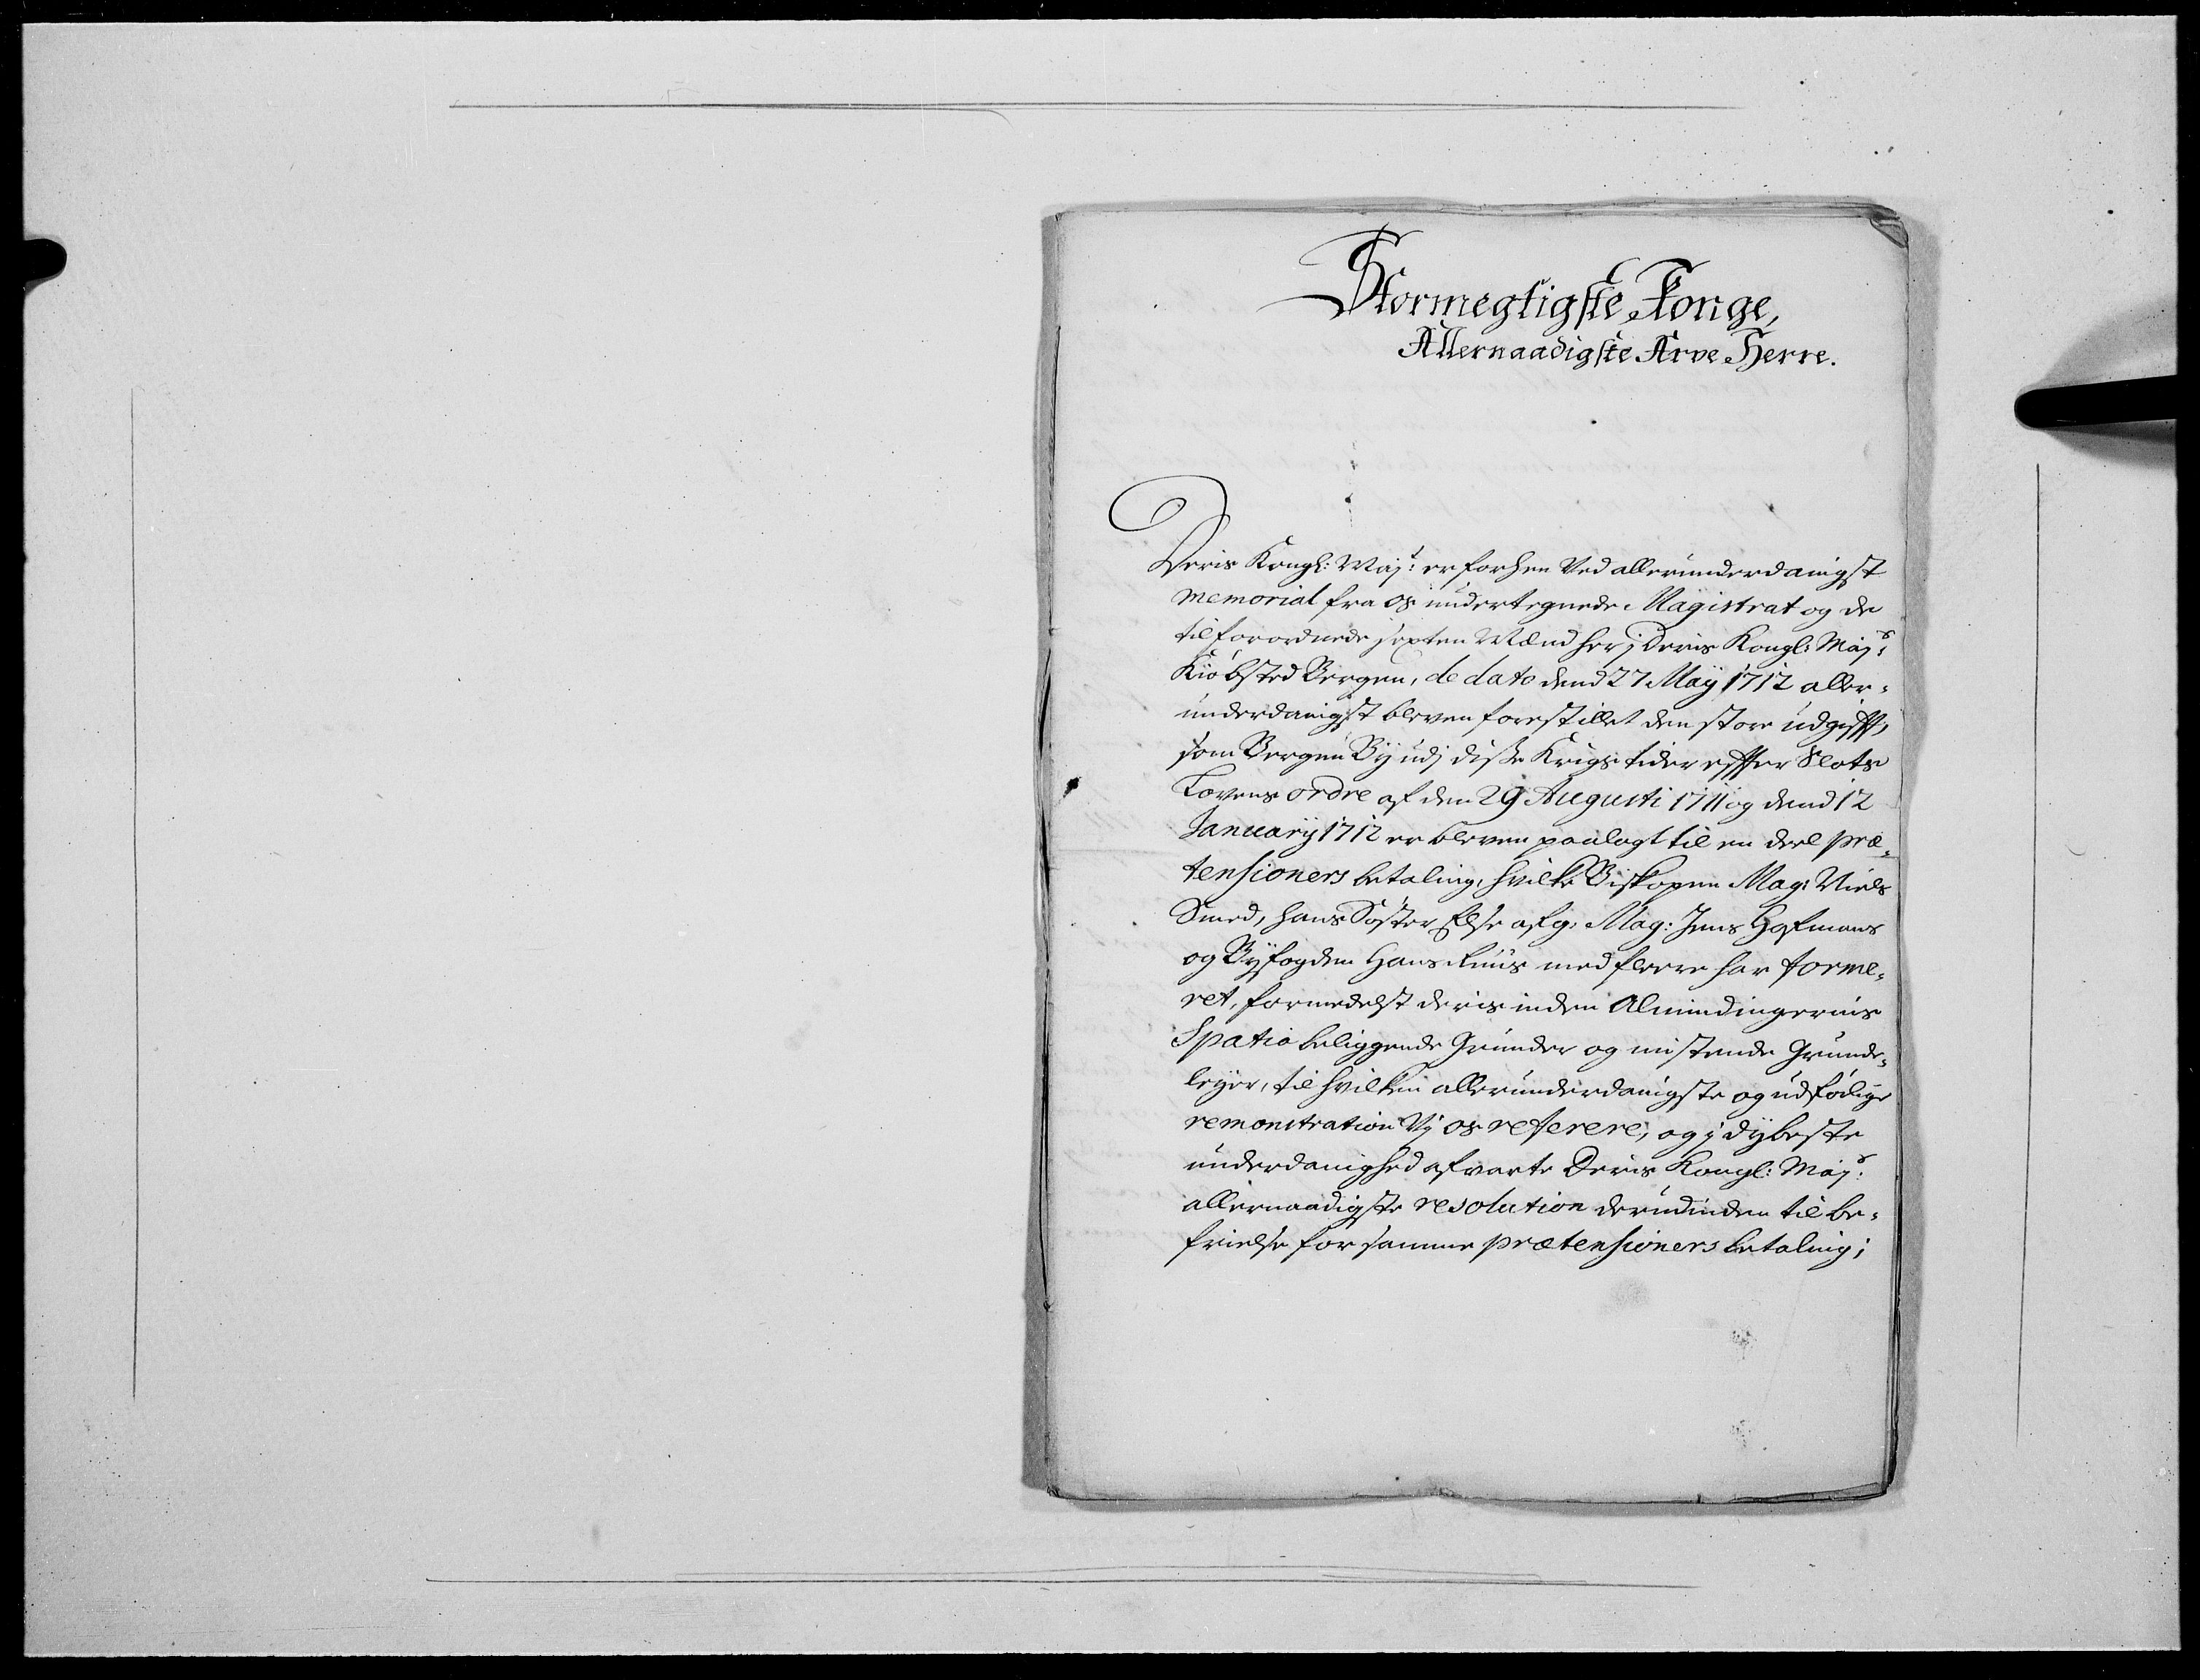 Stormegtigste Konge,
Allernaadigste Arve Herre.
Deris Kongl: Maj:t er forhen Ved allerunderdanigst
memorial fra os undertegnede Magistrat og de
tilforordnede sexten Mænd her j Deris Kongl: Maj:s
Kiøbsted Bergen, de dato dend 27 Maÿ 1712 aller-
underdanigst bleven forestillet den store udgifft,
som Bergen Bÿ udj diße Krigs tider effter Slots
Lovens ordre af den 29 Augusti 1711 og dend 12
Januarÿ 1712 er bleven paalagt til en deel præ-
tensioners betaling, hvilke Biskopen Mag: Niels
Smed, hans Søster Else afg: Mag: Jens Hofmans
og Bÿfogden Hans Ruus med fleere har forme-
ret, formedelst deris inden Almindingernis
Spatio beliggende Grunder og mistende Grunde-
leÿer, til hvilken allerunderdanigste og udførlige
remonstration Vj os referere, og j dÿbeste
underdanighed afvarte Deris Kongl: Maj:s
allernaadigste resolution derudinden til be-
frielse for samme prætensioners betaling;